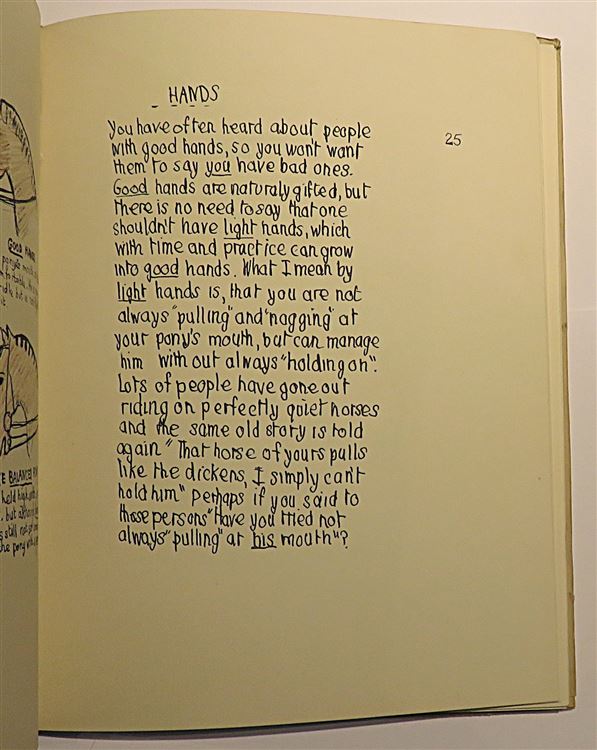 HANDS
25
You have often heard about people
with good hands, so you won't want
them to say you have bad ones.
Good hands are naturaly gifted, but
there is no need to say that one
shouldn't have light hands, which
with time and practice can grow
into good hands. What I mean by
light hands is, that you are not
always "pulling" and "nagging" at
your pony's mouth, but can manage
him with out always "holding on".
Lots of people have gone out
riding on perfectly quiet horses
and the same old story is told
again "That horse of yours pulls
like the dickens, I simply can't
hold him" perhaps if you said to
those persons "Have you tried not
always "pulling" at his mouth"?
GOOD
pony's
BALANCED
held high
but
still not
the pony